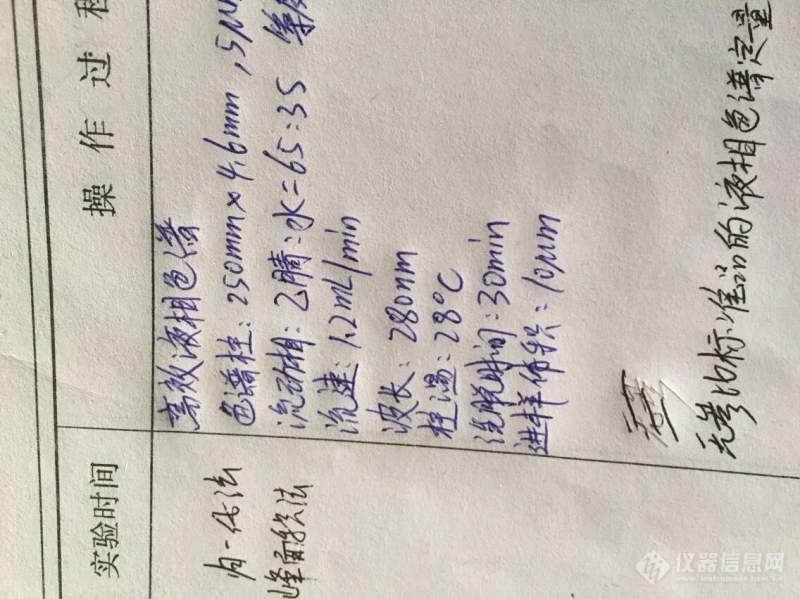 操作过程
实验时间
归一化法
峰面积法
高效液相色谱
色谱柱：250mm×4.6mm，5μ
流动相：乙腈：水=65：35 等
流速：1.2mL/min
波长：280nm
柱温：28℃
洗脱时间：30min
进样体积：10μm
无参比标准品的液相色谱定量
仪器信息网